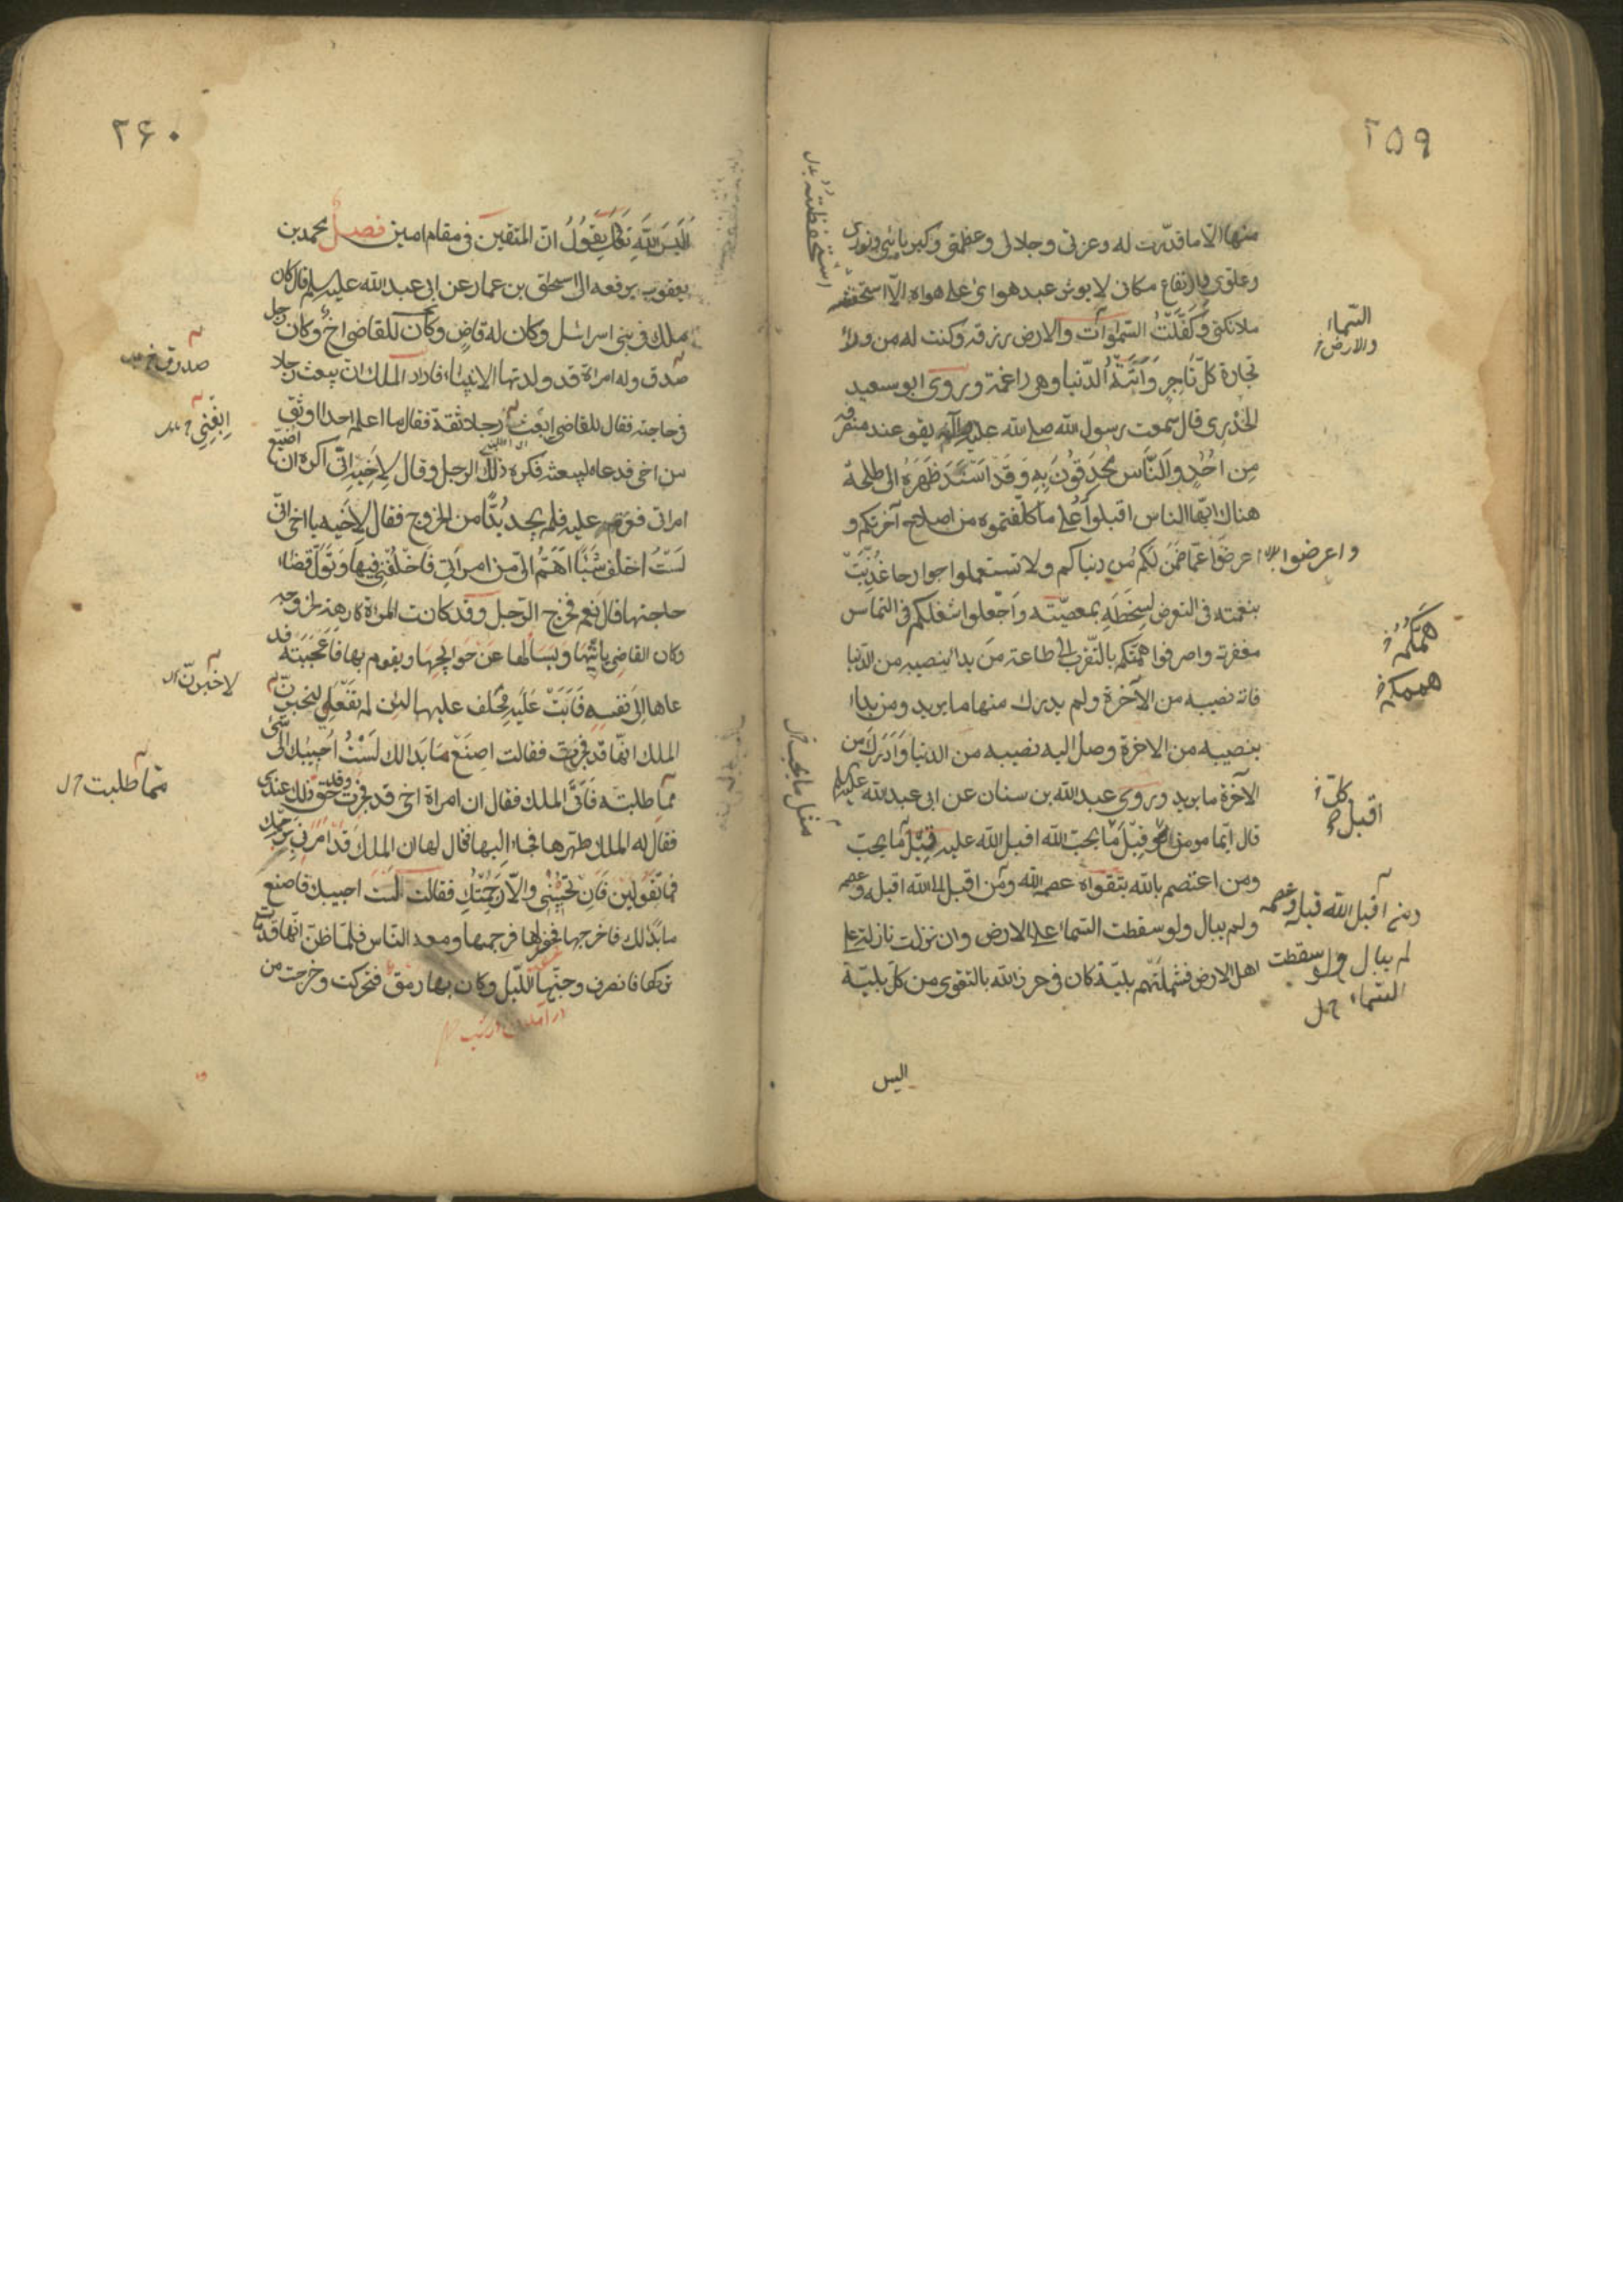 ٢٥٩
منها الّا ما قدّرت له وعزتی وجلالی وعظمتی وکبریائی ونوری
وعلوی وارتفاع مکانی لا یوثر عبد هوای علی هواه الّا استحفظته
ملائکتی وَکَفَّلْتُ السّمٰوات والارض رزقه وکنت له من وراء
تجارة کلّ تاجر وَاَتَتْهُ الدّنیا وهی راغمة وروی ابو سعید
الخدری قال سمعت رسول الله صلی الله علیه وآله یقول عند منصرفه
مِن اُحُدٍ والنّاس مُحْدِقُونَ بِهِ وَقَد اَسْنَدَ ظَهْرَهُ الی طلحة
هناک ایّها الناس اقبلوا علی ما کلّفتموه من اصلاح آخرتکم و
اعرضوا عمّا ضُمِنَ لکم من دنیاکم ولا تستعملوا جوارحا غُذِیَتْ
بنعمته فی التعرض لسخطه بمعصیته واجْعلوا شغلکم فی التماس
مغفرته واصرفوا همّتکم بالتقرب الی طاعته من بدا بنصیبه من الدّنیا
فاته نصیبه من الآخرة ولم یدرک منها ما یرید ومن بدا
بنصیبه من الاخرة وصل الیه نصیبه من الدنیا وَاَدْرَکَ من
الآخرة ما یرید وروی عبد الله بن سنان عن ابی عبد الله علیه السلم
قال ایّما مومن اقبل قِبَلَ ما یحبّ الله اقبل الله علیه قِبَلَ ما یحبّ
ومن اعتصم بالله بتقواه عصمه الله ومَن اقبل الله اقبله وعصمه
ولم یبال ولو سقطت السّماء علی الارض وان نزلت نازلة علی
اهل الارض فشملتهم بلیّة کان فی حرز الله بالتقوی من کلّ بلیّة
الیس
استحفظته
السّماء
والارض
واعرضوا
همّکم
هممکم
کان
اقبل
ومن اقبل الله قبله وعصمه
لم یبال ولو سقطت
السّماء
مثل ما یحبّ
٢۶٠
اَلَیْسَ اللّٰه تَعَالٰی یَقُولُ انّ المتقین فی مقام امین فصل محمد بن
یعقوب یرفعه الی اسحٰق بن عمار عن ابی عبد الله علیه السلم قال کان
ملک فی بنی اسرائیل وکان له قاض وکان للقاضی اخ وکان رجل
صدق وله امراة قد ولدتها الانبیاء فاراد الملک ان یبعث رجلا
فی حاجته فقال للقاضی ابعث رجلا ثقة فقال ما اعلم احدا اوثق
من اخی فدعاه لیبعثه فکره ذلک الرجل وقال لاخیه انّی اکره ان اضیّع
امراتی فعزم علیه فلم یجد بُدًّا من الخروج فقال لاخیه یا اخی انّی
لَسْتُ اخلف شَیْئًا اَهَمّ الیّ من امراتی فَاخْلُفْنی فیها وَتَوَلّ قضاء
حاجتها قال نعم فخرج الرّجل وقد کانت المراة کارهة لخروجه
وکان القاضی یاتیها ویسالها عن حوائجها ویقوم بها فاعجبته فد
عاها الی نفسه فَاَبَتْ علیه فحلف علیها لئن لم تفعلی لنخبرنّ
الملک انّها قد فجرت فقالت اصنع ما بدا لک لَسْتُ اجیبک الی شیء
ممّا طلبته فَاَتَی الملک فقال ان امراة اخی قد فجرت وقد حق ذلک عندی
فقال له الملک طهّرها فجاء الیها فقال لها ان الملک قد امرنی برجمک
فما تقولین فان تجیبنی والّا رَجَمْتُکِ فقالت لست اجیبک فاصنع
ما بدا لک فاخرجها فحفر لها فرجمها ومعه النّاس فلمّا ظنّ انّها قد ماتت
ترکها فانصرف وجنّها اللّیل وکان بها رمق فتحرکت وخرجت من
صدوق
ابغنی
لاخبرنّ
ممّا طلبت